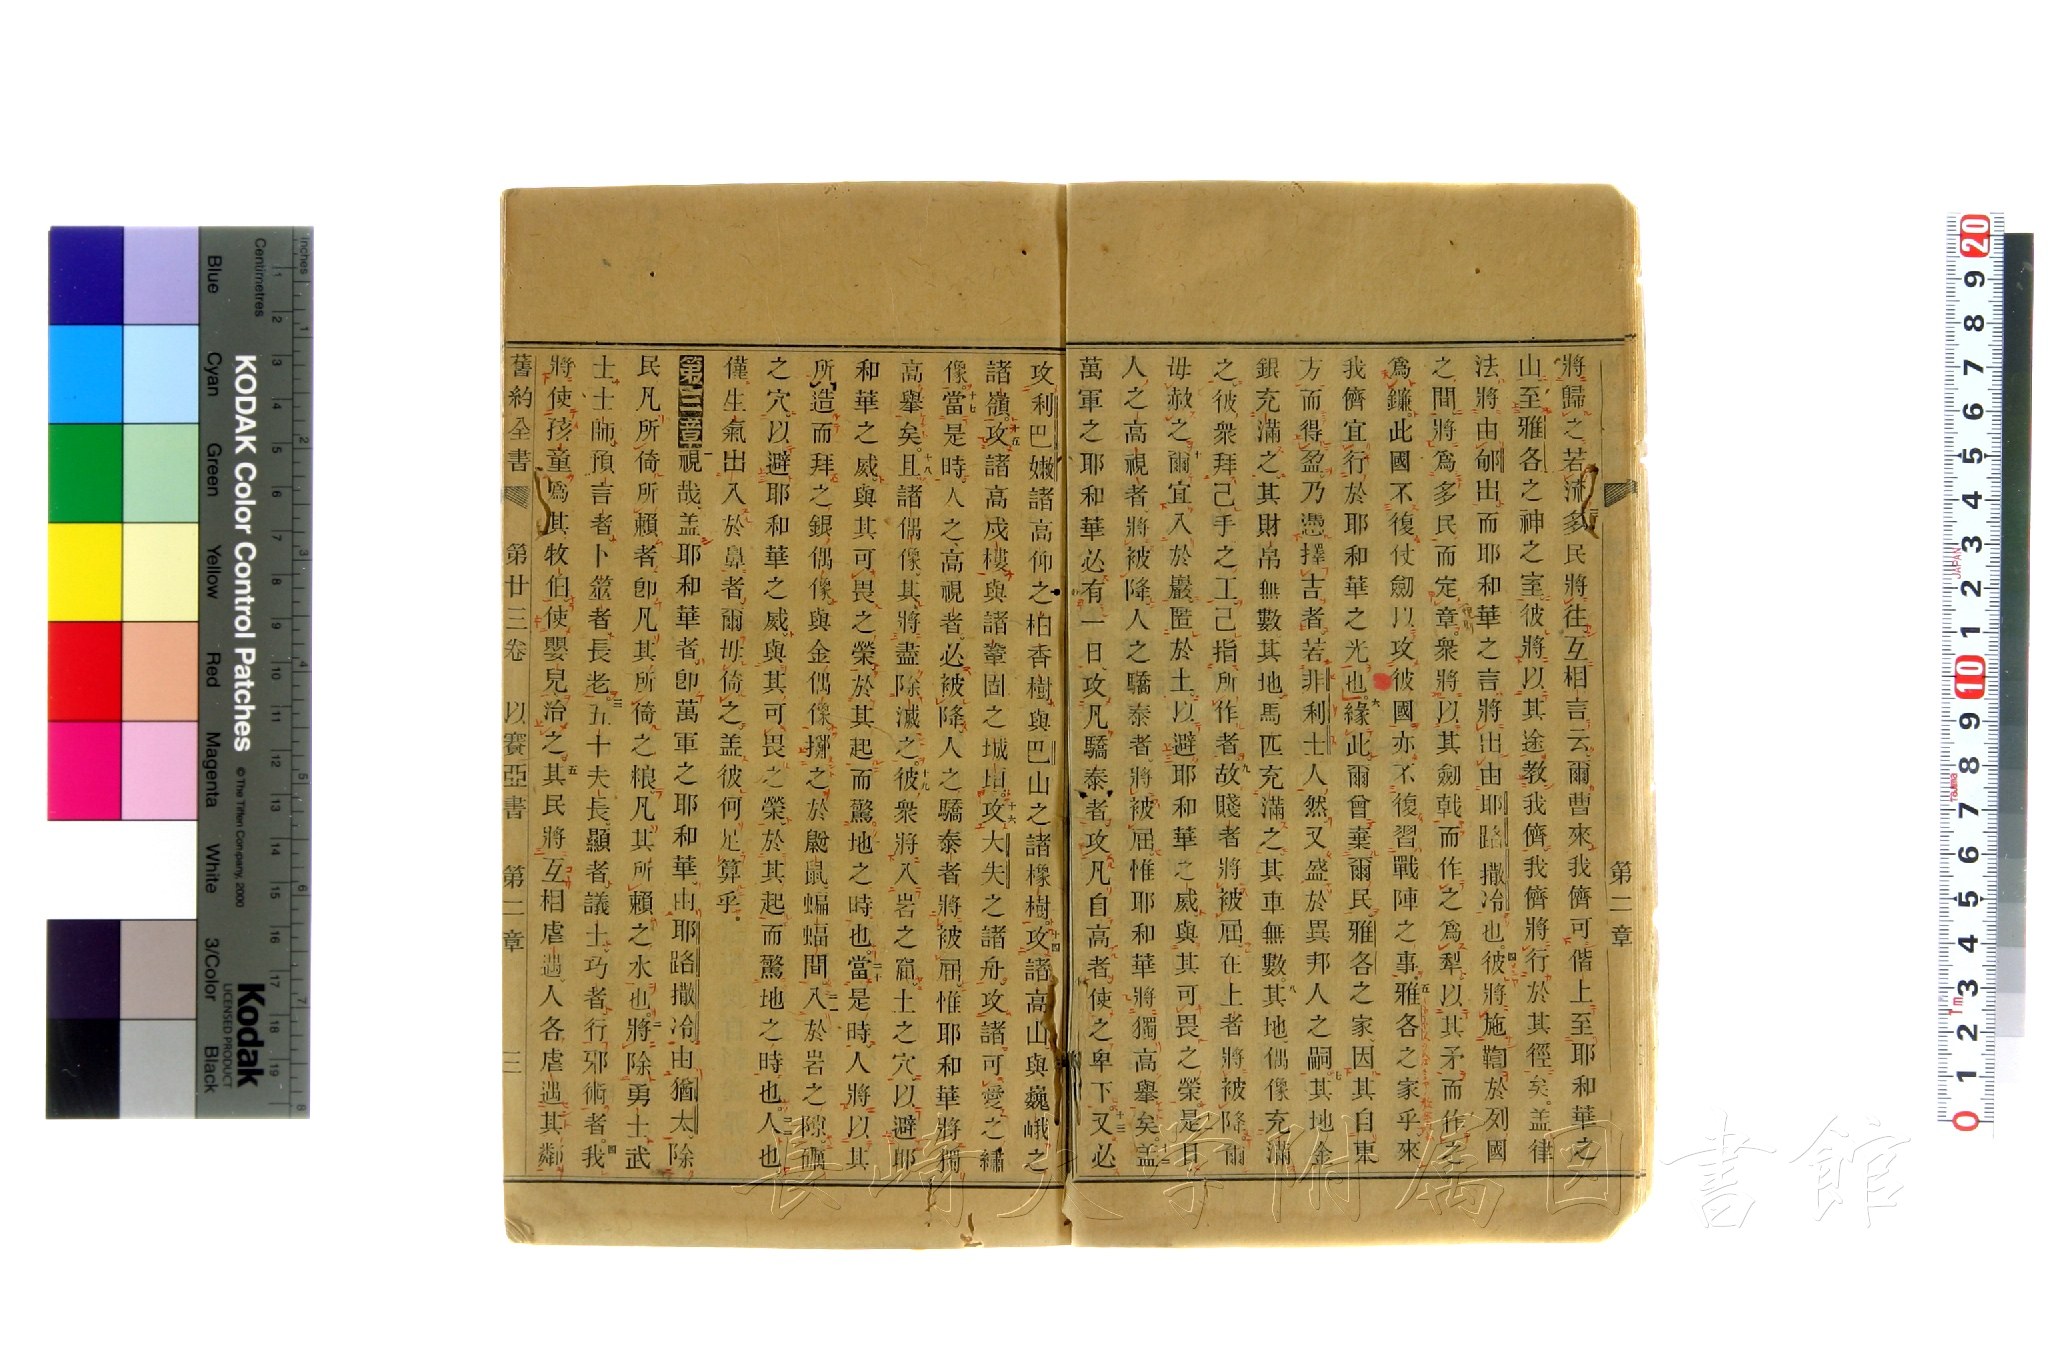 第二章
將歸之若沛多民將往互相言云爾曹來我儕可偕上至耶和華之
山至雅各之神之室彼將以其途教我儕我儕將行於其徑矣盖律
法將由郇出而耶和華之言將出由耶路撒冷也四彼將施鞫於列國
之間將爲多民而定章衆將以其劍戟而作之爲犁以其矛而作之
爲鐮此國不復仗劍以攻彼國亦不復習戰陣之事五雅各之家乎來
我儕宜行於耶和華之光也六緣此爾曾棄爾民雅各之家因其自東
方而得盈乃憑擇吉者若非利士人然又盛於異邦人之嗣七其地金
銀充滿之其財帛無數其地馬匹充滿之其車無數八其地偶像充滿
之彼衆拜己手之工己指所作者九故賤者將被屈在上者將被降爾
毋赦之十爾宜入於巖匿於土以避耶和華之威與其可畏之榮十一是日
人之高視者將被降人之驕泰者將被屈惟耶和華將獨高舉矣十二盖
萬軍之耶和華必有一日攻凡驕泰者攻凡自高者使之卑下十三又必
攻利巴嫩諸高仰之柏香樹與巴山之諸橡樹十四攻諸高山與巍峨之
諸嶺十五攻諸高戍樓與諸鞏固之城垣十六攻大失之諸舟攻諸可愛之繡
像十七當是時人之高視者必被降人之驕泰者將被屈惟耶和華將獨
高舉矣十八且諸偶像其將盡除滅之十九彼衆將入岩之窟土之穴以避耶
和華之威與其可畏之榮於其起而驚地之時也二十當是時人將以其
所造而拜之銀偶像與金偶像擲之於鼢鼠蝙蝠間二一入於岩之隙礪
之穴以避耶和華之威與其可畏之榮於其起而驚地之時也二二人也
僅生氣出入於鼻者爾毋倚之盖彼何足算乎
第三章一視哉盖耶和華者卽萬軍之耶和華由耶路撒冷由猶太除
民凡所倚所賴者卽凡其所倚之粮凡其所賴之水也二將除勇士武
士士師預言者卜筮者長老三五十夫長顯者議士巧者行邪術者四我
將使孩童爲其牧伯使嬰兒治之五其民將互相虐遇人各虐遇其鄰
舊約全書 第廿三卷 以賽亞書 第二章 三
長崎大学附属図書館
KODAK Color Control Patches
© The Tiffen Company, 2000
Kodak
LICENSED PRODUCT
Inches
Centimetres
Blue
Cyan
Green
Yellow
Red
Magenta
White
3/Color
Black
JAPAN
Tajima
1m